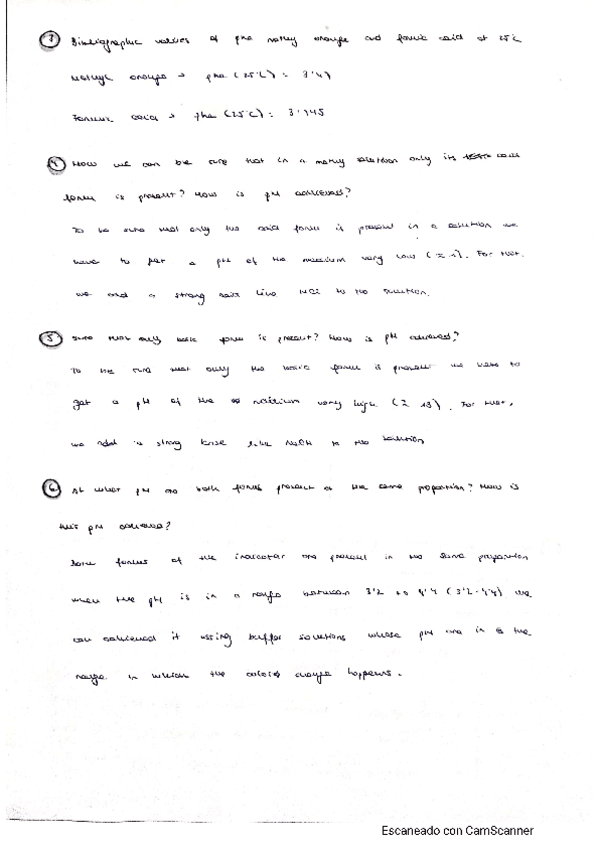 ③ Bibliographic values of pKa methyl orange and formic acid at 25°C
Methyl orange → pKa (25°C) = 3'4
Formic acid → pKa (25°C) = 3'745
④ How we can be sure that in a solution only its acid
form is present? How is pH achieved?
To be sure that only the acid form is present in a solution we
have to get a pH of the medium very low (≈ 1). For that,
we add a strong acid like HCl to the solution.
⑤ Sure that only basic form is present? How is pH achieved?
To be sure that only the basic form is present we have to
get a pH of the medium very high (≈ 13). For that,
we add a strong base like NaOH to the solution
⑥ At what pH are both forms present at the same proportion? How is
this pH achieved?
Both forms of the indicator are present in the same proportion
when the pH is in a range between 3'2 to 4'4 (3'2-4'4) we
can achieved it using buffer solutions whose pH are in the
range in which the color change happens.
Escaneado con CamScanner